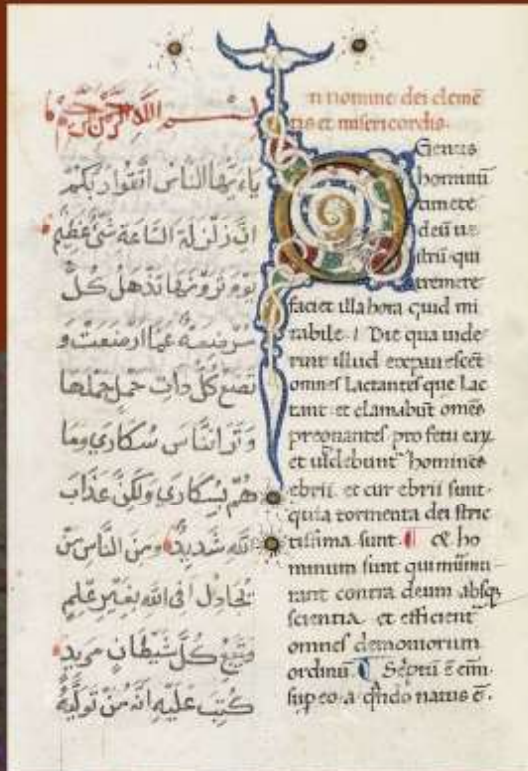 بِسْمِ اللَّهِ الرَّحْمَنِ الرَّحِيمِ
ياءيها الناس اتقوا ربكم
ان زلزلة الساعة شئ عظيم
يوم ترونها تذهل كل
مرضعة عما ارضعت و
تضع كل ذات حمل حملها
وترا الناس سكاري وما
هم بسكاري ولكن عذاب
الله شديد ومن الناس من
يجادل في الله بغير علم
ويتبع كل شيطان مريد
كتب عليه انه من توليه
n nomine dei clemē
tis et misericordis.
Genus
hominū
timete
deū ue
strū qui
tremere
faciet illa hora quid mi
rabile / Die qua uide
rint illud expauescēt
omnes Lactantes que lac
tant et clamabūt omēs
pregnantes pro fetu eaꝝ
et uidebunt homines
ebrii et cur ebrii sunt.
quia tormenta dei stric
tissima sunt. ¶ De ho
minum sunt qui murmu
rant contra deum absq̨
scientia et efficient
omnes demoniorum
ordinū ¶ Sc̄ptū ē em̄.
sup eo a qn̄do natus ē.